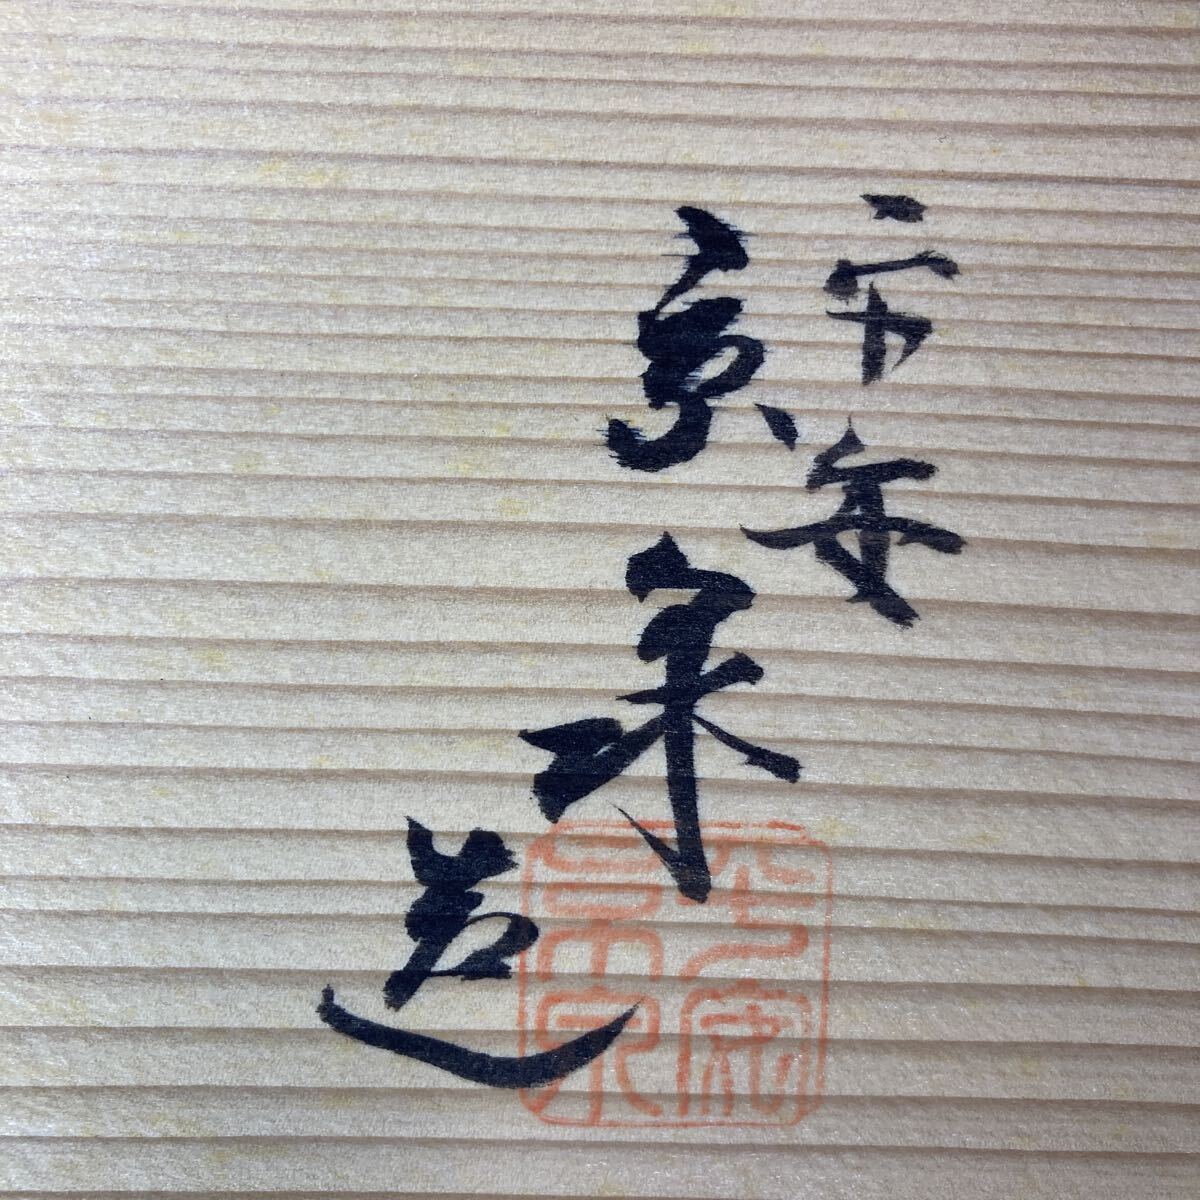 平安
京泉造